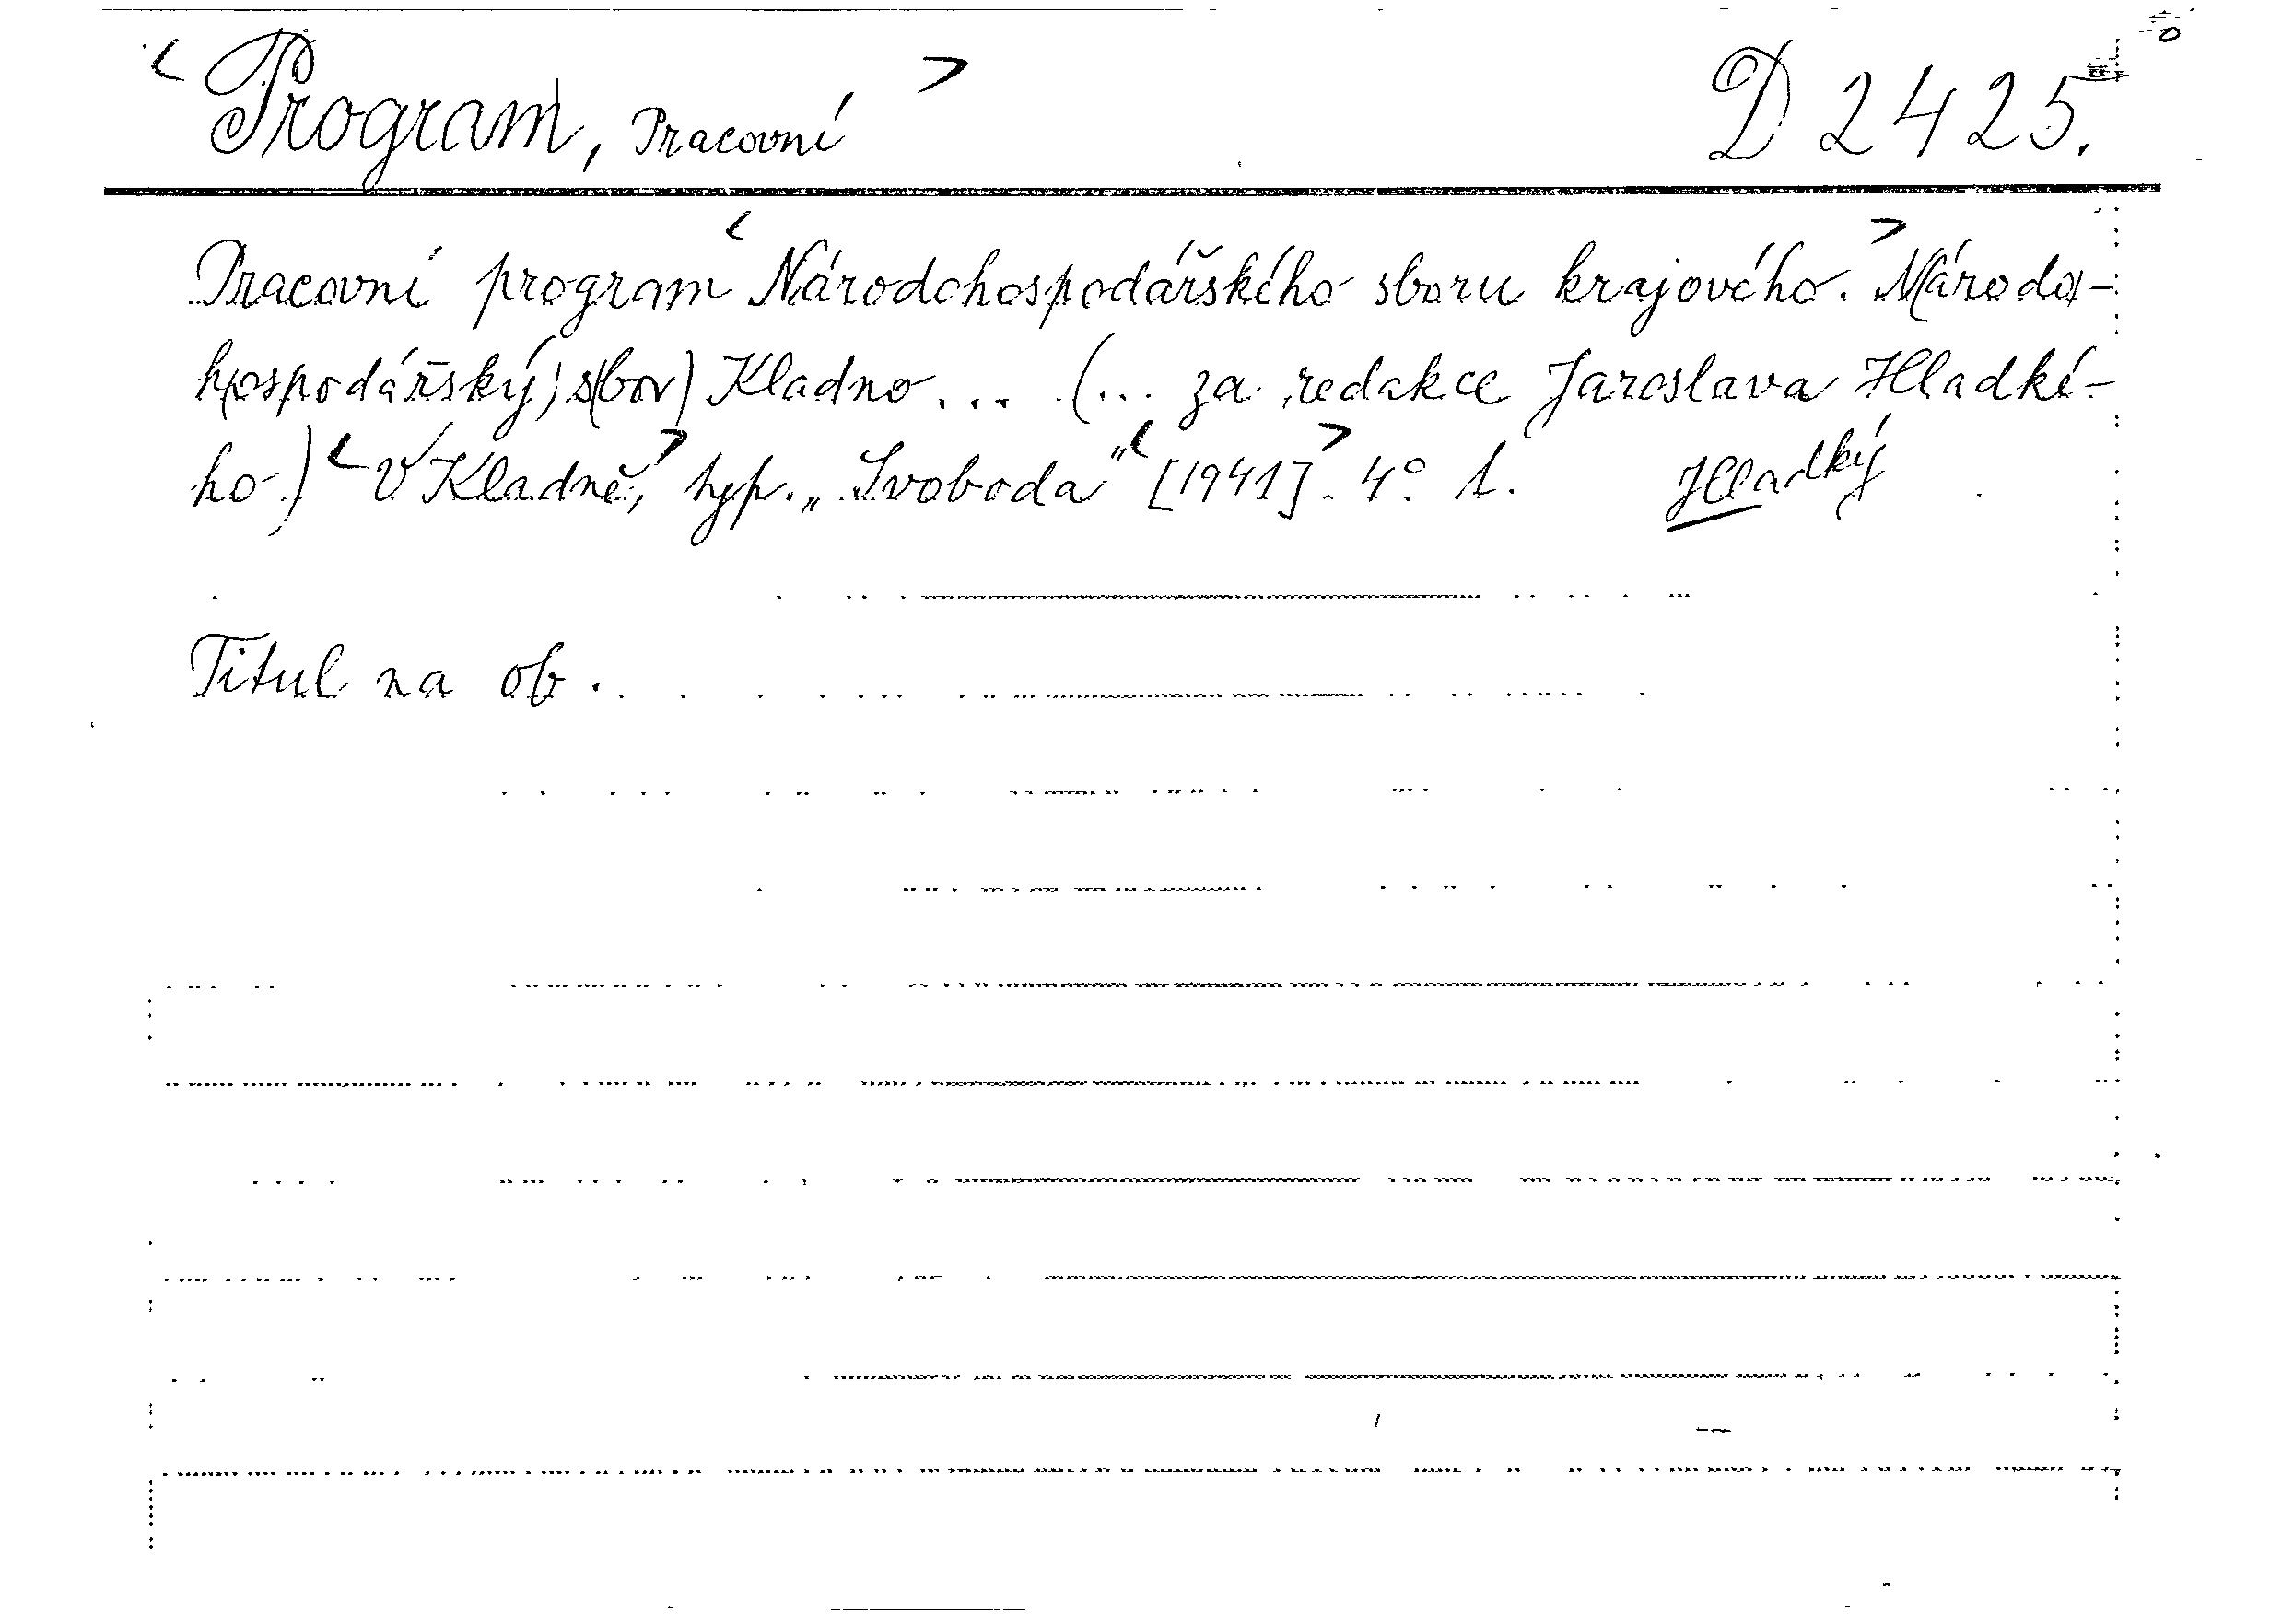 < Program, Pracovní > D 2425.
Pracovní program < Národohospodářského sboru krajového. > N(árodo)-
h(ospodářský) s(bor) Kladno ... (... za redakce Jaroslava Hladké-
ho) < V Kladně, > typ. „Svoboda" < [1941] > . 4° 1. Hladký
Titul na ob.